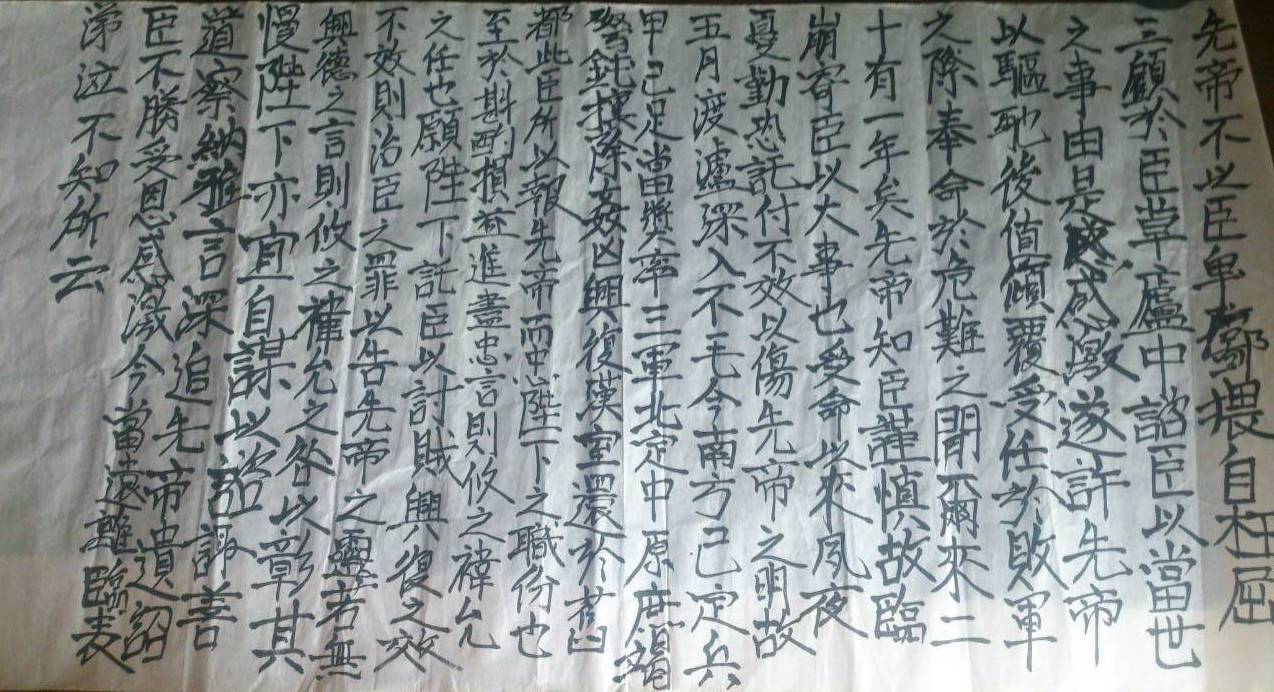 先帝不以臣卑鄙猥自枉屈
三顧於臣草廬中諮臣以當世
之事由是感激遂許先帝
以驅馳後值傾覆受任於敗軍
之際奉命於危難之間爾來二
十有一年矣先帝知臣謹慎故臨
崩寄臣以大事也受命以來夙夜
憂勤恐託付不效以傷先帝之明故
五月渡瀘深入不毛今南方已定兵
甲已足當獎率三軍北定中原庶竭
駑鈍攘除姦凶興復漢室還於舊
都此臣所以報先帝而忠陛下之職份也
至於斟酌損益進盡忠言則攸之褘允
之任也願陛下託臣以討賊興復之效
不效則治臣之罪以告先帝之靈若無
興德之言則攸之褘允之咎以彰其
慢陛下亦宜自謀以諮諏善
道察納雅言深追先帝遺詔
臣不勝受恩感激今當遠離臨表
涕泣不知所云